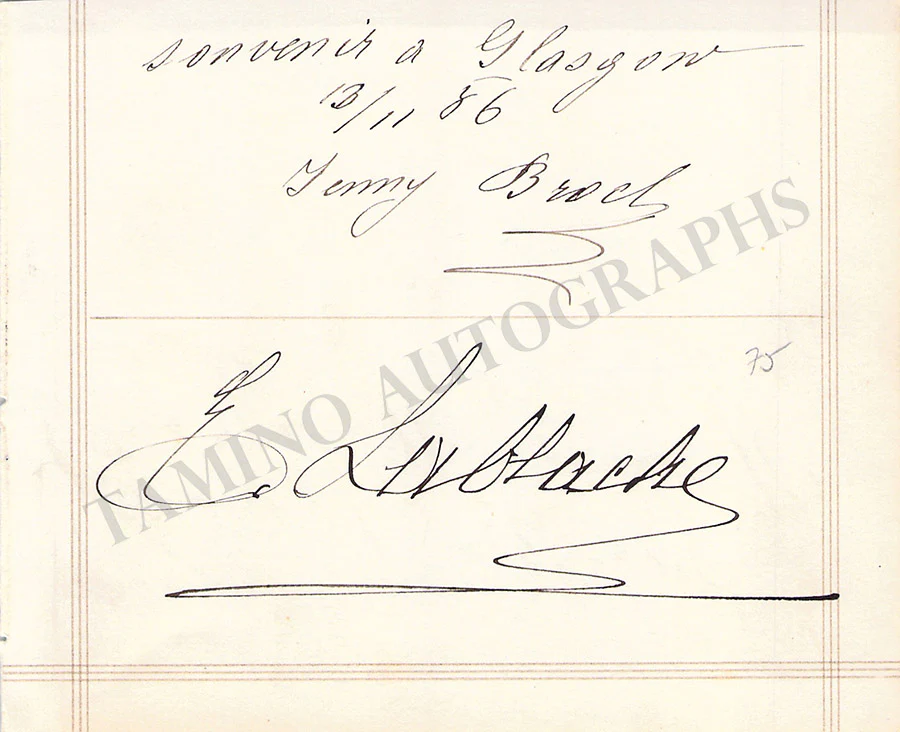 souvenir a Glasgow
13/11 86
Jenny Broch
75
E. Lablache
TAMINO AUTOGRAPHS